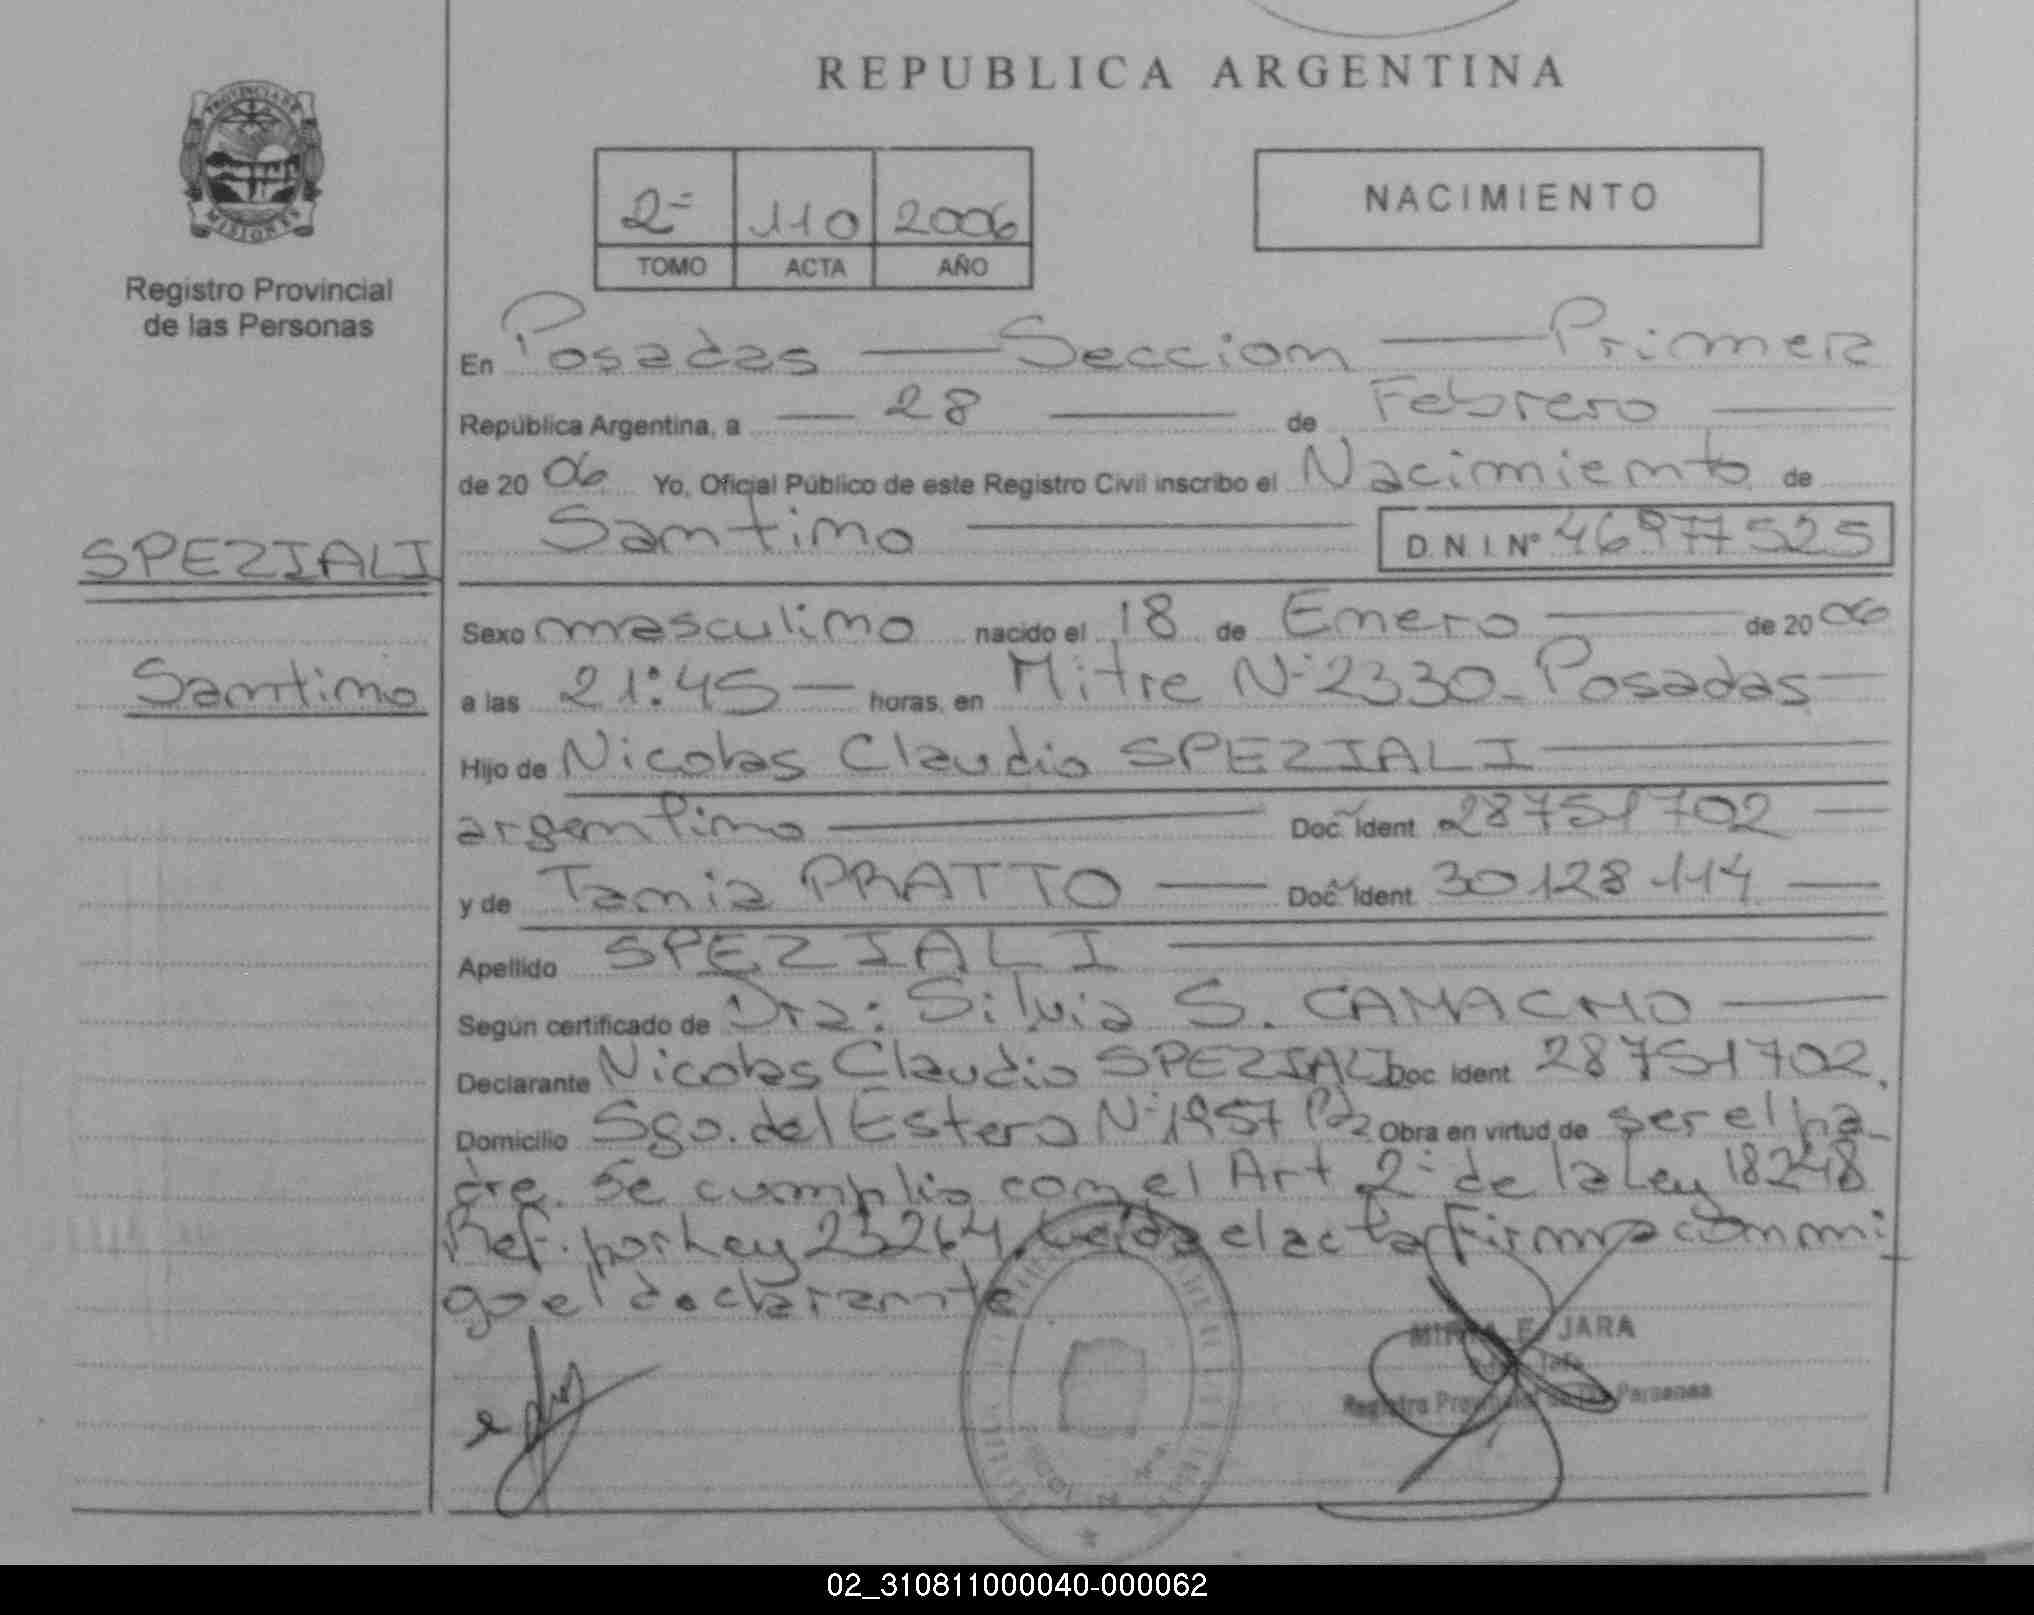 REPUBLICA ARGENTINA
PROVINCIA DE
MISIONES
Registro Provincial
de las Personas
2º 110 2006
TOMO ACTA AÑO
NACIMIENTO
En Posadas — Seccion — Primera
República Argentina, a — 28 — de Febrero —
de 2006 Yo, Oficial Público de este Registro Civil inscribo el Nacimiento de
Santino — D.N.I. Nº 46977525
SPEZIALI
Santino
Sexo masculino nacido el 18 de Enero — de 2006
a las 21:45 — horas, en Mitre Nº 2330 - Posadas —
Hijo de Nicolas Claudio SPEZIALI —
argentino — Doc. Ident. 28751702 —
y de Tania PRATTO — Doc. Ident. 30128114 —
Apellido SPEZIALI —
Según certificado de Dra: Silvia S. CAMACHO —
Declarante Nicolas Claudio SPEZIALI Doc. Ident. 28751702.
Domicilio Sgo. del Estero Nº 1957 Pdas Obra en virtud de ser el pa-
dre. Se cumplio con el Art 2º de la Ley 18248
Ref. por Ley 23264. Leida el acta firma conmi
go el declarante
E. JARA
Registro Provincial de las Personas
02_310811000040-000062